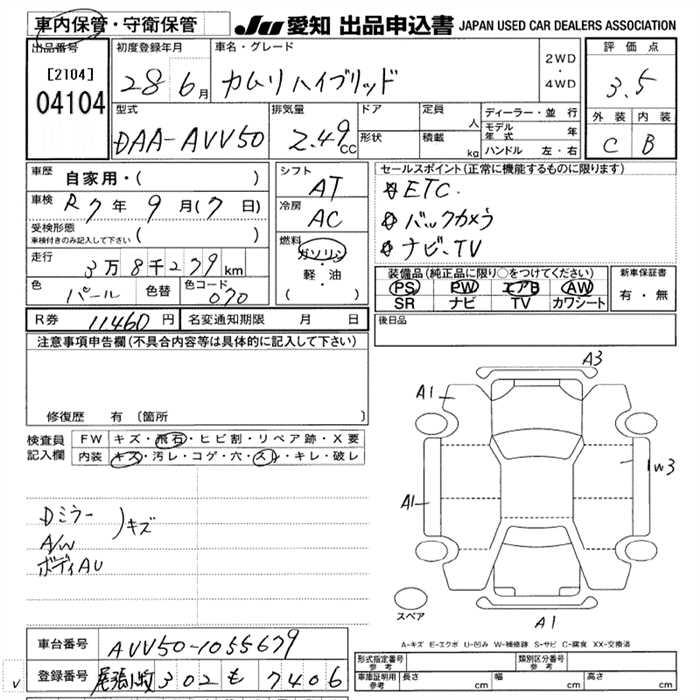 車内保管・守衛保管
JU 愛知 出品申込書 JAPAN USED CAR DEALERS ASSOCIATION
出品番号
[2104]
04104
初度登録年月
28 6月
車名・グレード
カムリハイブリッド
2WD
・
4WD
評価点
3.5
外装 内装
C B
型式
DAA-AVV50
排気量
2.49cc
ドア
形状
定員 人
積載 kg
ディーラー・並行
モデル年式 年
ハンドル 左・右
車歴 自家用・( )
車検 R7年9月(7日)
受検形態
車検付きのみ記入して下さい ( )
走行 3万8千279km
色 パール 色替 色コード 070
シフト
AT
冷房
AC
燃料
ガソリン
・
軽・油
( )
セールスポイント(正常に機能するものに限ります)
ETC.
バックカメラ
ナビ.TV
装備品(純正品に限り○をつけてください)
PS PW エアB AW
SR ナビ TV カワシート
新車保証書
有・無
R券 11460円 名変通知期限 月 日
後日品
注意事項申告欄(不具合内容等は具体的に記入して下さい)
修復歴 有 〔箇所
検査員記入欄
FW キズ・飛石・ヒビ割・リペア跡・X要
内装 キズ・汚レ・コゲ・穴・スレ・キレ・破レ
Dミラー
A/W
ボディAU
)キズ
A3
A1
W3
A1
スペア
A1
A-キズ E-エクボ U-凹み W-補修跡 S-サビ C-腐食 XX-交換済
車台番号 AVV50-1055679
登録番号 尾張小牧 302 も 7406
v
形式指定番号
参考
類別区分番号
参考
車庫証明用
参考
長さ cm 幅 cm 高さ cm